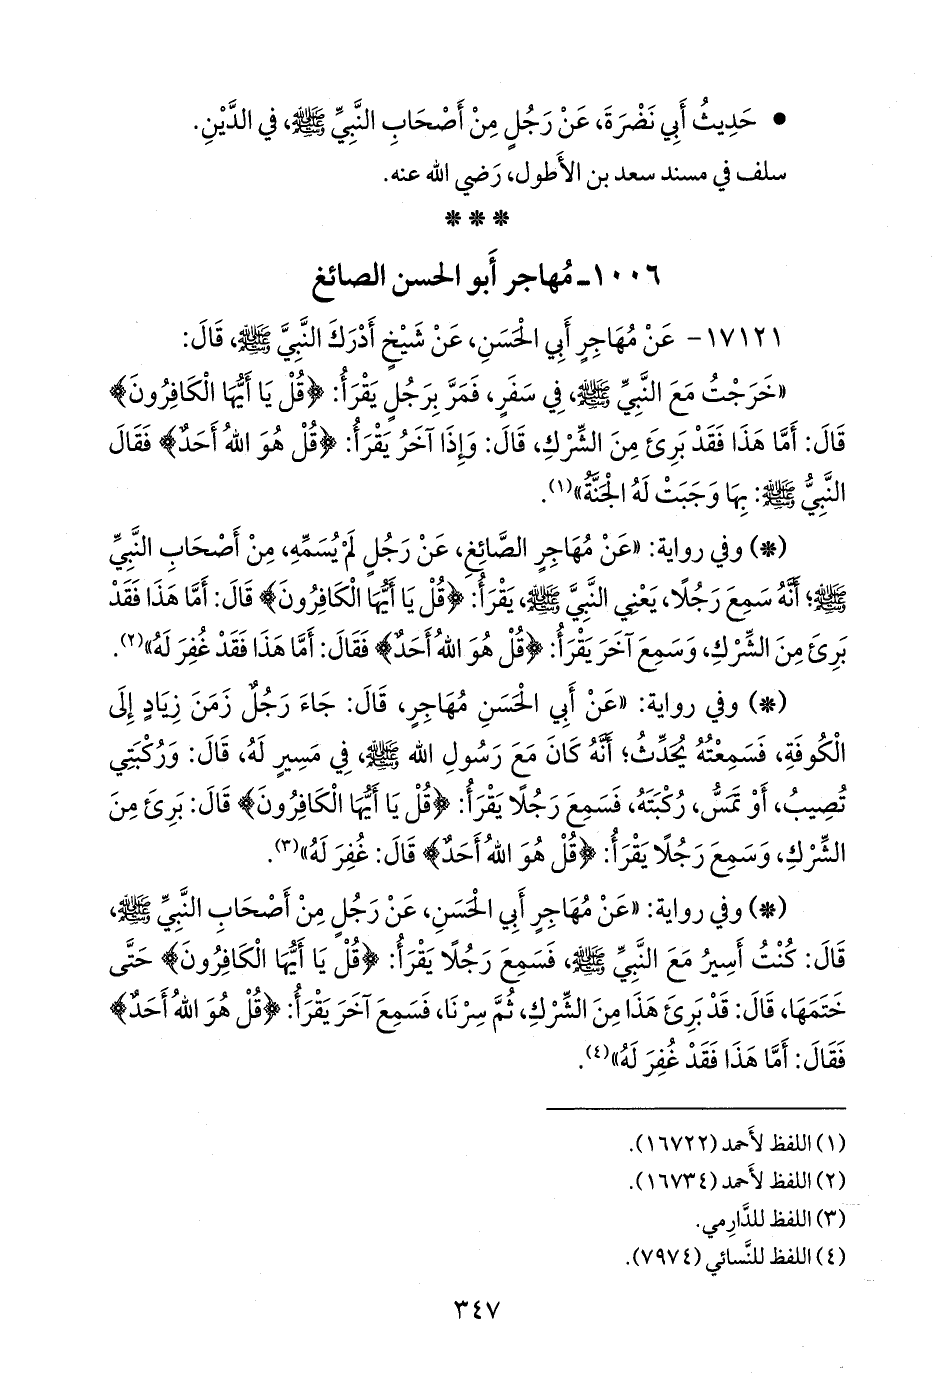 • حَدِيثُ أَبِي نَضْرَةَ، عَنْ رَجُلٍ مِنْ أَصْحَابِ النَّبِيِّ ﷺ، في الدَّيْنِ.
سلف في مسند سعد بن الأَطول، رَضي الله عنه.
* * *
١٠٠٦ - مُهاجر أَبو الحسن الصائغ
١٧١٢١ - عَنْ مُهَاجِرٍ أَبِي الْحَسَنِ، عَنْ شَيْخٍ أَدْرَكَ النَّبِيَّ ﷺ، قَالَ:
«خَرَجْتُ مَعَ النَّبِيِّ ﷺ، فِي سَفَرٍ، فَمَرَّ بِرَجُلٍ يَقْرَأُ: ﴿قُلْ يَا أَيُّهَا الْكَافِرُونَ﴾
قَالَ: أَمَّا هَذَا فَقَدْ بَرِئَ مِنَ الشِّرْكِ، قَالَ: وَإِذَا آخَرُ يَقْرَأُ: ﴿قُلْ هُوَ اللهُ أَحَدٌ﴾ فَقَالَ
النَّبِيُّ ﷺ: بِهَا وَجَبَتْ لَهُ الْجَنَّةُ»(١).
(*) وفي رواية: «عَنْ مُهَاجِرٍ الصَّائِغِ، عَنْ رَجُلٍ لَمْ يُسَمِّهِ، مِنْ أَصْحَابِ النَّبِيِّ
ﷺ؛ أَنَّهُ سَمِعَ رَجُلًا، يَعْنِي النَّبِيَّ ﷺ، يَقْرَأُ: ﴿قُلْ يَا أَيُّهَا الْكَافِرُونَ﴾ قَالَ: أَمَّا هَذَا فَقَدْ
بَرِئَ مِنَ الشِّرْكِ، وَسَمِعَ آخَرَ يَقْرَأُ: ﴿قُلْ هُوَ اللهُ أَحَدٌ﴾ فَقَالَ: أَمَّا هَذَا فَقَدْ غُفِرَ لَهُ»(٢).
(*) وفي رواية: «عَنْ أَبِي الْحَسَنِ مُهَاجِرٍ، قَالَ: جَاءَ رَجُلٌ زَمَنَ زِيَادٍ إِلَى
الْكُوفَةِ، فَسَمِعْتُهُ يُحَدِّثُ؛ أَنَّهُ كَانَ مَعَ رَسُولِ الله ﷺ، فِي مَسِيرٍ لَهُ، قَالَ: وَرُكْبَتِي
تُصِيبُ، أَوْ تَمَسُّ، رُكْبَتَهُ، فَسَمِعَ رَجُلًا يَقْرَأُ: ﴿قُلْ يَا أَيُّهَا الْكَافِرُونَ﴾ قَالَ: بَرِئَ مِنَ
الشِّرْكِ، وَسَمِعَ رَجُلًا يَقْرَأُ: ﴿قُلْ هُوَ اللهُ أَحَدٌ﴾ قَالَ: غُفِرَ لَهُ»(٣).
(*) وفي رواية: «عَنْ مُهَاجِرٍ أَبِي الْحَسَنِ، عَنْ رَجُلٍ مِنْ أَصْحَابِ النَّبِيِّ ﷺ،
قَالَ: كُنْتُ أَسِيرُ مَعَ النَّبِيِّ ﷺ، فَسَمِعَ رَجُلًا يَقْرَأُ: ﴿قُلْ يَا أَيُّهَا الْكَافِرُونَ﴾ حَتَّى
خَتَمَهَا، قَالَ: قَدْ بَرِئَ هَذَا مِنَ الشِّرْكِ، ثُمَّ سِرْنَا، فَسَمِعَ آخَرَ يَقْرَأُ: ﴿قُلْ هُوَ اللهُ أَحَدٌ﴾
فَقَالَ: أَمَّا هَذَا فَقَدْ غُفِرَ لَهُ»(٤).
(١) اللفظ لأَحمد (١٦٧٢٢).
(٢) اللفظ لأَحمد (١٦٧٣٤).
(٣) اللفظ للدَّارِمي.
(٤) اللفظ للنَّسائي (٧٩٧٤).
٣٤٧